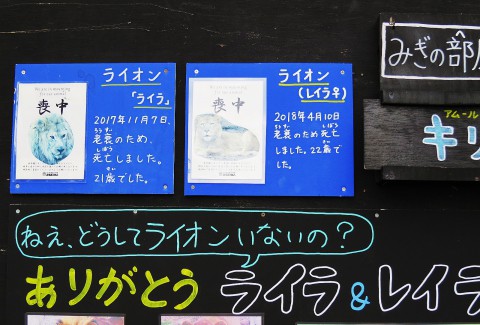 ライオン
「ライラ」
喪中
2017年11月7日、
老衰のため、
死亡しました。
21歳でした。
ライオン
(レイラキ)
喪中
2018年4月10日
老衰のため死亡
しました。22歳で
した。
みぎの部屋
アムール
キリ
ねえ、どうしてライオンいないの?
ありがとう ライラ&レイラ